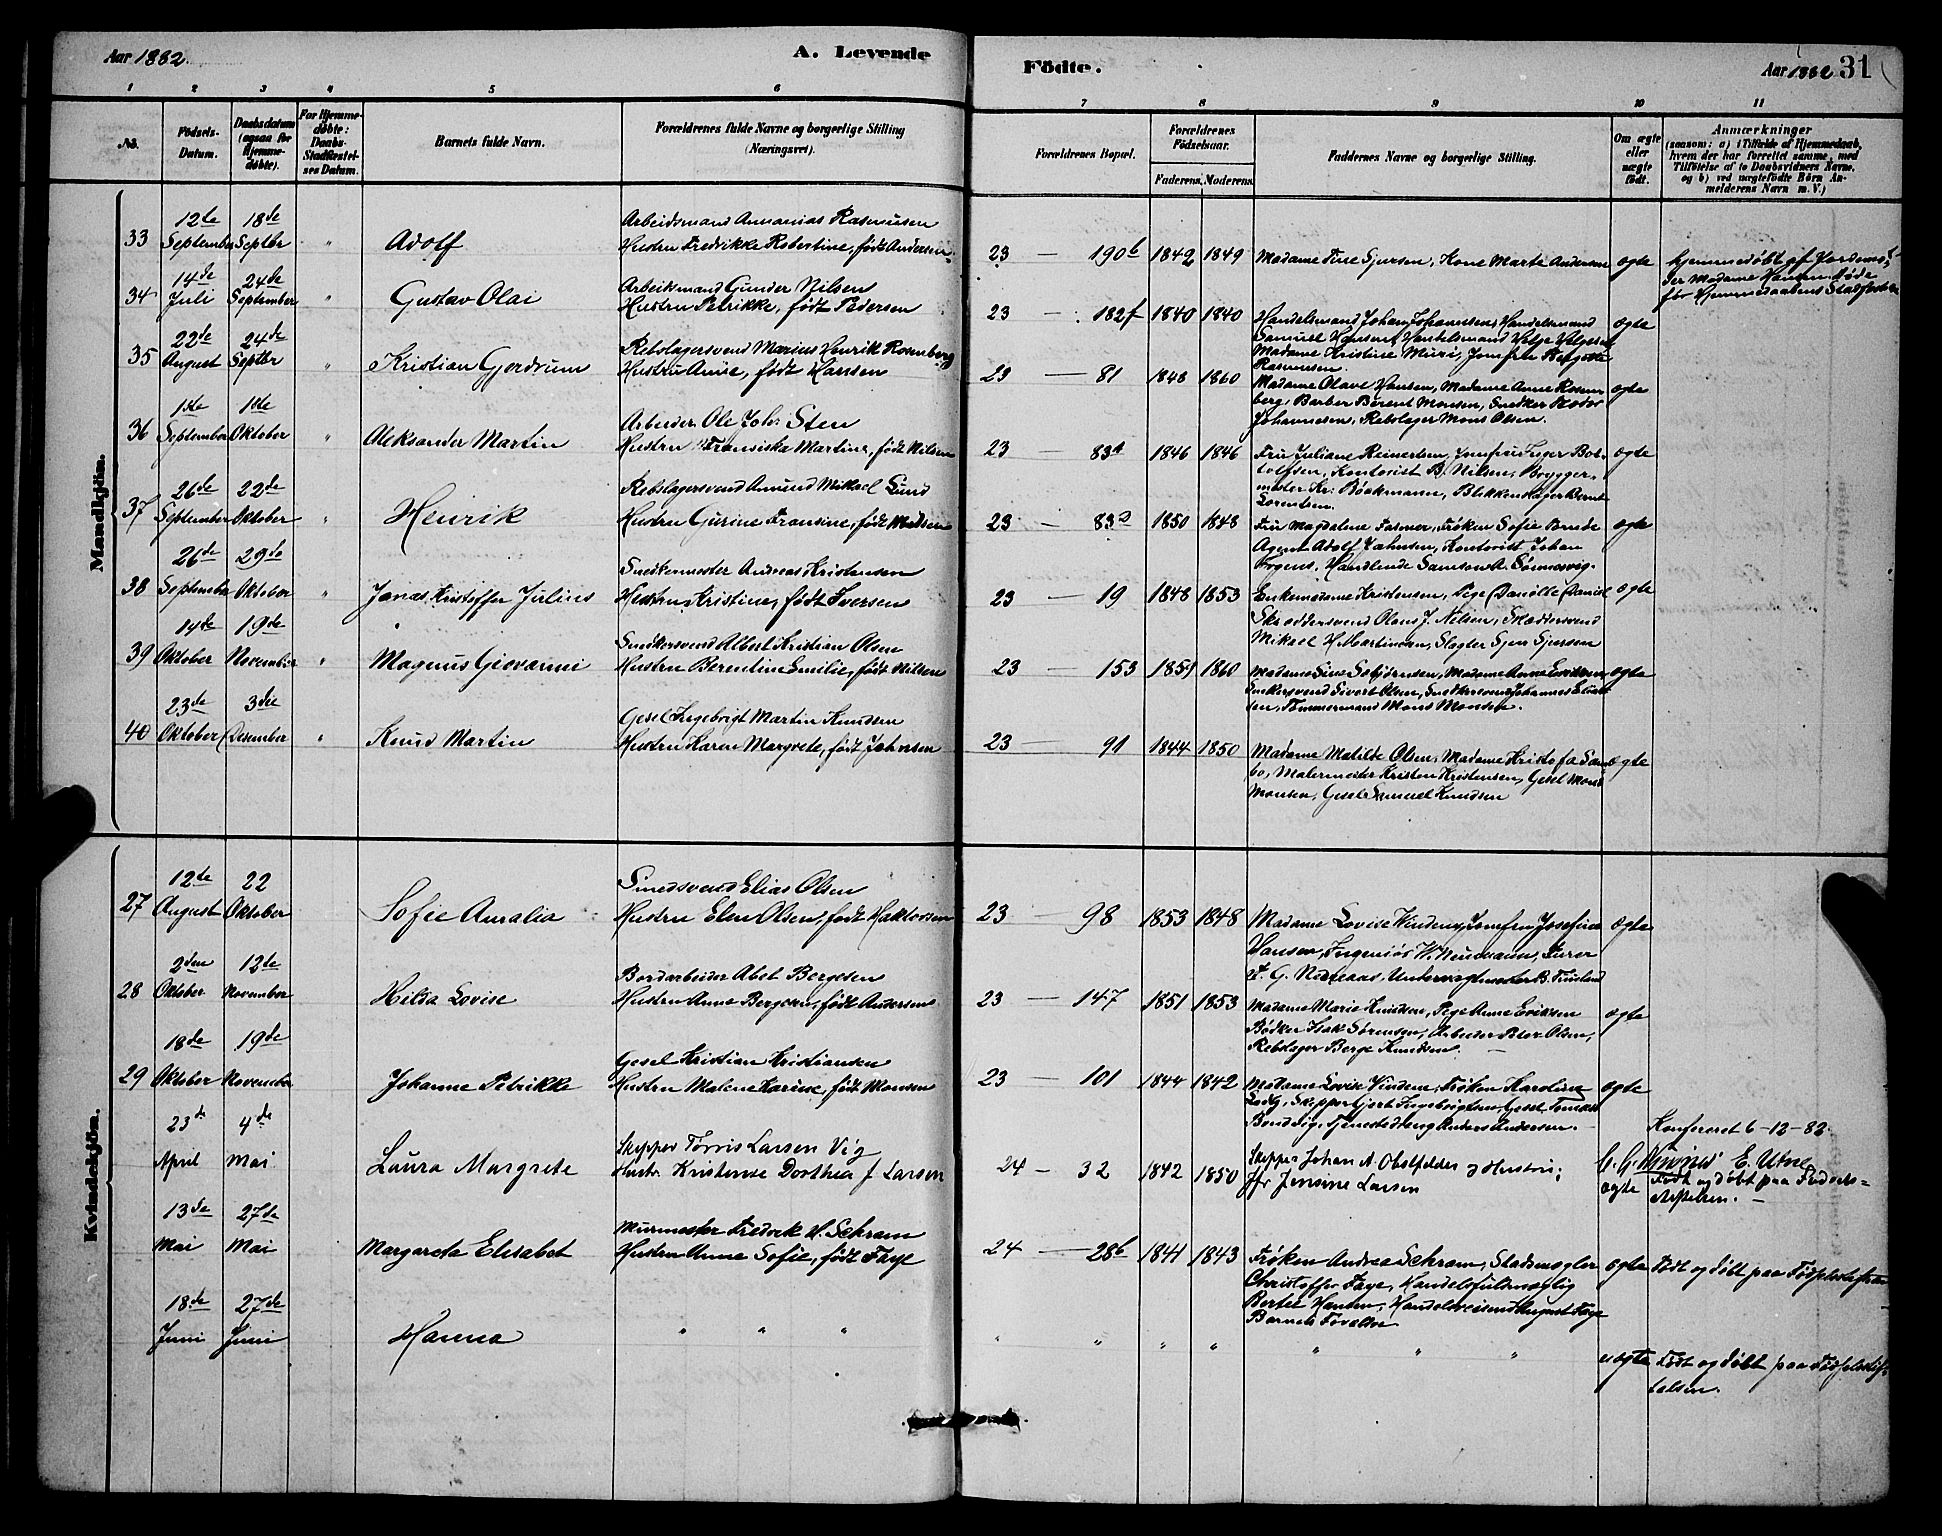 Aar 1882. A. Levende Födte. Aar 1882 31
1 2 3 4 5 6 7 8 9 10 11
No. Födsels-Datum. Daabsdatum (ogsaa for Hjemme-döbte). For Hjemme-döbte: Daabs-Stadfæstel-ses Datum. Barnets fulde Navn. Forældrenes fulde Navne og borgerlige Stilling (Næringsvei).
Forældrenes Bopæl. Forældrenes Födselsaar. Faderens. Moderens. Faddernes Navne og borgerlige Stilling. Om ægte eller uægte födt. Anmærkninger
(saasom: a) i Tilfælde af Hjemmedaab, hvem der har forrettet samme, med Tilföielse af to Daabsvidners Navne, og b) ved uægtefödte Börn An-melderens Navn m. V.)
Mandkjön.
33 12te September 18de Septbr " Adolf
Arbeidsmand Annanias Rasmussen
Hustru Fredrikke Robertine, født Andersen.
23 — 190b 1842 1849 Madame Fine Sjursen, Kone Marte Andersen ægte
Hjemmedøbt af Jordemo-
der Madame Hansen. Døde
før Hjemmedaabens Stadfæstelse
34 14de Juli 24de September " Gustav Olai
Arbeidsmand Gunder Nilsen
Hustru Petrikke, født Pedersen
23 — 182f 1840 1840 Handelsmand Johan Johannesen, Handelsmand ægte
Samuel Hansen, Handelsmand
Madame Kristine
Rasmussen.
35 22de August 24de Septbr " Kristian Gjerdrum
Rebslagersvend Marius Henrik Rosenberg
Hustru Anne, født Hansen
23 — 81 1848 1860 Madame Olave Hansen, Madame Anne Rosen- ægte
berg, Barber Berent Monsen, Snedker
Johannesen, Rebslager Mons Olsen.
36 1ste September 1ste Oktober " Aleksander Martin
Arbeider Ole Johs Sten
Hustru Fransiska Martine, født Nilsen
23 — 83 1846 1846 Fru Juliane Reinertsen, Jomfru Inger Bot- ægte
tolfsen, Kontorist B. Nilsen, Brygger-
mester Kr. Böckmann, Blikkenslager Bernt
Lorentsen.
37 26de September 22de Oktober " Henrik
Rebslagersvend Amund Mikael Lund
Hustru Gurine Fransine, født Madsen
23 — 83 1850 1848 Fru Magdalene Fasmer, Frøken Sofie Brede ægte
Agent Adolf Jahnsen, Kontorist Johan
Handlende Samson A.
38 26de September 29de Oktober " Jonas Kristoffer Julius
Snedkermester Andreas Kristensen
Hustru Kristine, født Iversen
23 — 19 1848 1853 Enkemadame Kristensen, Pige Danielle Daniel ægte
Skræddersvend Olaus J. Nilsen, Skræddersvend
Mikael H. Martinsen, Slagter Sjur Sjursen
39 14de Oktober 19de November " Magnus Giovanni
Snedkersvend Albert Kristian Olsen
Hustru Berentine Emilie, født Nilsen
23 — 153 1859 1860 Madame Sine Madame Anna Eriksen, ægte
Snekersvend Sivert Olsen, Snedkersvend Johannes
sen, Tømmermand Mons Monsen.
40 23de Oktober 3die Desember " Knud Martin
Gesel Ingebrigt Martin Knudsen
Hustru Karen Margrete, født Johnsen
23 — 91 1844 1850 Madame Matilde Olsen, Madame Kristofa San- ægte
bo, Malermester Kristen Kristensen, Gesel Mons
Monsen, Gesel Samuel Knudsen
Kvindekjön.
27 12te August 22 Oktober Sofie Auralia
Smedsvend Elias Olsen
Hustru Elen Olsen, født Haktorsen
23 — 98 1853 1848 Madame Lovise Vindenes, Jomfru Josefine ægte
Hansen, Ingeniør W. Neumann, Lærer
B.
28 2den Oktober 12te November Helsa Lovise
Bordarbeider Abel Bergesen
Hustru Anne Bergesen, født Andersen
23 — 147 1851 1853 Madame Marie Knudsen, Pige Anne Eriksen ægte
Bødker Isak Sørensen, Arbeider Peter Olsen,
Rebslager Berge Knudsen. —
29 18de Oktober 19de November Johanne Petrikke
Gesel Kristian Kristiansen
Hustru Malene Karine, født Monsen
23 — 101 1844 1842 Madame Lovise Vindenes, Frøken Karoline ægte
Skipper Gjert Ingebrigtsen, Gesel Tomas
Tjenestedreng Anders Andersen. —
Konfereret 6-12-82
E. Utne
23de April 4de Mai Laura Margrete
Skipper Tørris Larsen Vig
Hustr. Kristense Dorthea f Larsen
24 — 32 1842 1850 Skipper Johan A. Obstfelder og Hustru; ægte
Jfr Jensine Larsen
Født og døbt paa Fødsels-
stiftelsen. —
13de Mai 27de Mai Margareta Elisabet
Murmester Fredrik H. Schram
Hustru Anne Sofie, født Faye
24 — 28b 1841 1843 Frøken Andrea Schram, Stadsmægler ægte Født og døbt paa Fødselsstiftelsen
Christoffer Faye, Handelsfuldmægtig
Berter Hansen, Handelsreisende August Faye
Barnets Forældre
18de Juni 27de Juni Hanna
" " " " " " " " " " uægte Født og døbt paa Fødselsstif-
telsen.